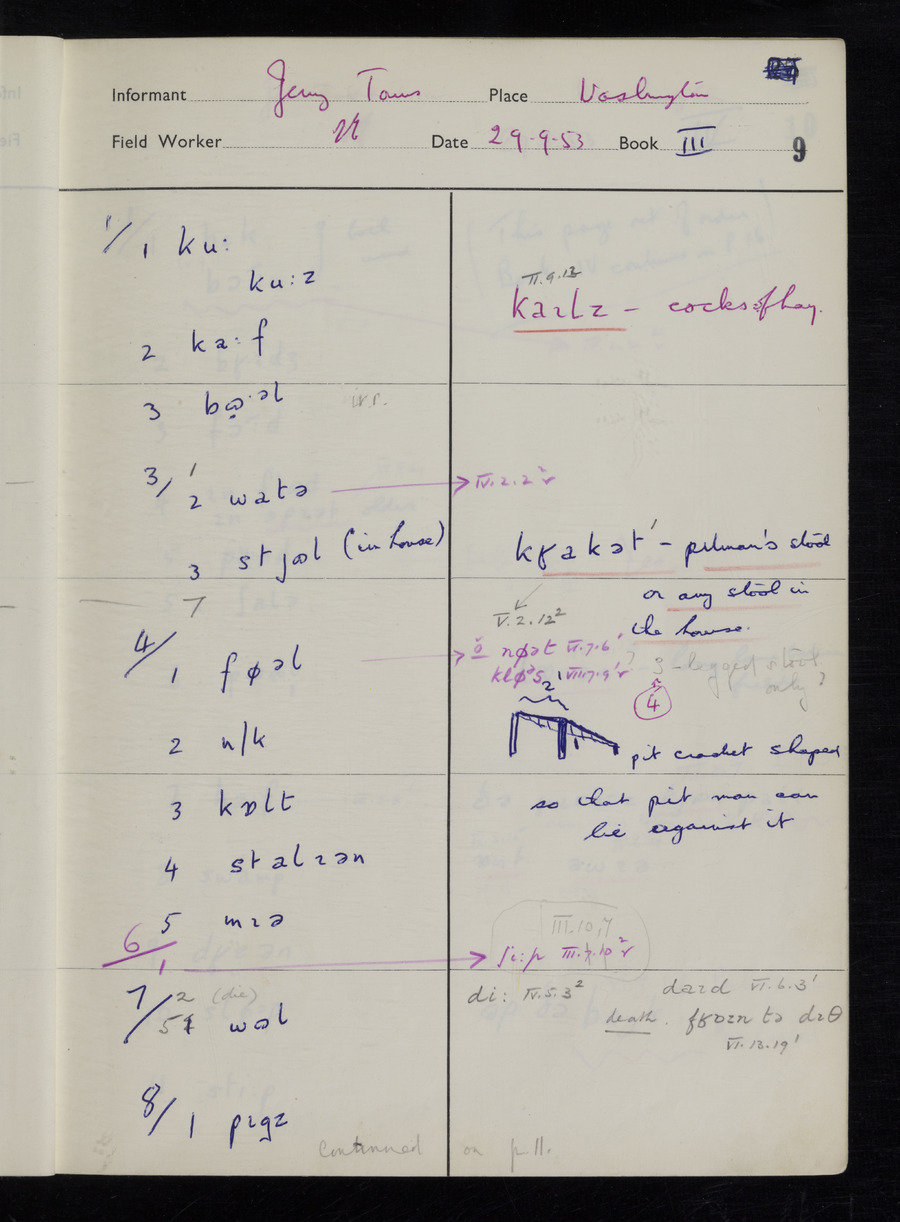 Informant Jerry Towns Place Washington
Field Worker Date 29-9-53 Book III
9
1/ 1 ku:
ku:z
II.9.12
kaɪlz – cocks of hay.
2 ka:f
3 bọ·əl i.r.
3/ 1
2 watə → IV.2.2² r
3 stjøəl (in house)
kʁakət' – pitman's stool
7
or any stool in
the house.
V.2.12²
4/ 1 føəl → ŏ nøət VI.7.6'
kløᵊs VII.7.9' r
? 3-legged stool
only?
4
2'
1'
2 n/k
pit cracket shaped
3 kɒlt
so that pit man can
lie against it
4 stalɪən
5 mɪə
III.10.7
6/ 1 → ʃi:p III.7.10² r
7/ 2 (die)
di: IV.5.3² dɛɪd VI.6.3'
5 wəl
death. fʁoɪn tə dɪθ
VI.13.19'
8/ 1 pɪgz
continued on p.11.